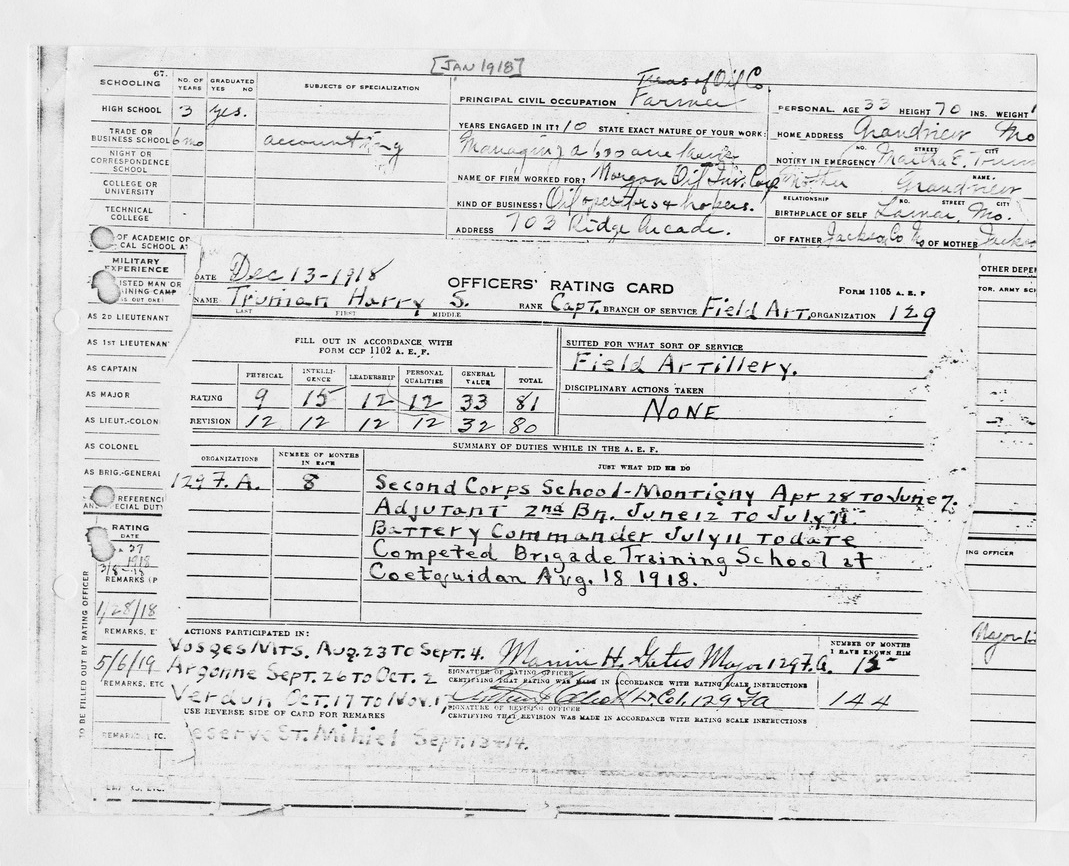 [JAN 1918]
67.
SCHOOLING
NO. OF YEARS
GRADUATED YES NO
SUBJECTS OF SPECIALIZATION
HIGH SCHOOL 3 yes.
TRADE OR BUSINESS SCHOOL 6 mo accounting
NIGHT OR CORRESPONDENCE SCHOOL
COLLEGE OR UNIVERSITY
TECHNICAL COLLEGE
OF ACADEMIC OR
CAL SCHOOL AT
Treas of Oil Co.
PRINCIPAL CIVIL OCCUPATION Farmer
YEARS ENGAGED IN IT? 10 STATE EXACT NATURE OF YOUR WORK:
Managing a 600 acre
NAME OF FIRM WORKED FOR? Morgan Oil Inv. Corp
KIND OF BUSINESS? Oil
ADDRESS 703 Ridge Arcade.
PERSONAL. AGE 33 HEIGHT 70 INS. WEIGHT
HOME ADDRESS Grandview Mo
NO. STREET CITY
NOTIFY IN EMERGENCY Martha E. Trum
NAME.
Mother Grandview
RELATIONSHIP NO. STREET CITY
BIRTHPLACE OF SELF Lamar, Mo.
OF FATHER Jackson Co Mo OF MOTHER Jackso
MILITARY EXPERIENCE
ISTED MAN OR
INING CAMP
AS 2D LIEUTENANT
AS 1ST LIEUTENAN
AS CAPTAIN
AS MAJOR
AS LIEUT.-COLON
AS COLONEL
AS BRIG.-GENERAL
REFERENC
ECIAL DUTY
RATING
DATE
27
1918
3/8-18
REMARKS (P
1/28/18
REMARKS, E
5/6/19
REMARKS, ETC
REMARKS
TO BE FILLED OUT BY RATING OFFICER
OTHER DEPE
TOR, ARMY SCH
ING OFFICER
Major
DATE Dec 13-1918
OFFICERS' RATING CARD
FORM 1105 A. E. F
NAME Truman Harry S. RANK Capt. BRANCH OF SERVICE Field Art. ORGANIZATION 129
LAST FIRST MIDDLE
FILL OUT IN ACCORDANCE WITH
FORM CCP 1102 A. E. F.
PHYSICAL INTELLIGENCE LEADERSHIP PERSONAL QUALITIES GENERAL VALUE TOTAL
RATING 9 15 12 12 33 81
REVISION 12 12 12 12 32 80
SUITED FOR WHAT SORT OF SERVICE
Field Artillery.
DISCIPLINARY ACTIONS TAKEN
NONE
SUMMARY OF DUTIES WHILE IN THE A. E. F.
ORGANIZATIONS
NUMBER OF MONTHS IN EACH
JUST WHAT DID HE DO
129 F.A. 8 Second Corps School-Montigny Apr 28 to June 7.
Adjutant 2nd Bn. June 12 to July 11.
Battery Commander July 11 to date
Competed Brigade Training School at
Coetquidan Aug. 18 1918.
ACTIONS PARTICIPATED IN:
Vosges Mts. Aug. 23 to Sept. 4.
Argonne Sept. 26 to Oct. 2
Verdun Oct. 17 to Nov. 1
USE REVERSE SIDE OF CARD FOR REMARKS
eserve St. Mihiel Sept. 13+14.
Marvin H. Gates Major 129 F.A.
SIGNATURE OF RATING OFFICER
CERTIFYING THAT RATING WAS MADE IN ACCORDANCE WITH RATING SCALE INSTRUCTIONS
Lt. Col. 129 FA
SIGNATURE OF REVISING OFFICER
CERTIFYING THAT REVISION WAS MADE IN ACCORDANCE WITH RATING SCALE INSTRUCTIONS
NUMBER OF MONTHS
I HAVE KNOWN HIM
15
144